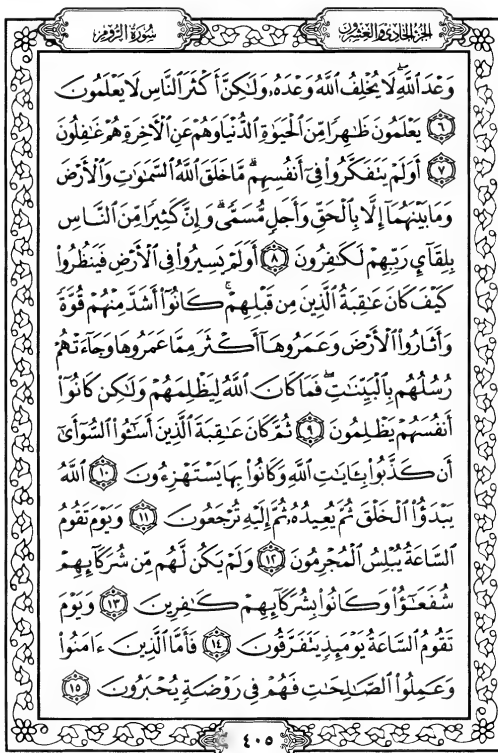 الجزء الحادي والعشرون
سُورَةُ الرُّومِ
وَعْدَ اللَّهِ ۖ لَا يُخْلِفُ اللَّهُ وَعْدَهُ وَلَٰكِنَّ أَكْثَرَ النَّاسِ لَا يَعْلَمُونَ
٦ يَعْلَمُونَ ظَاهِرًا مِّنَ الْحَيَوٰةِ الدُّنْيَا وَهُمْ عَنِ الْآخِرَةِ هُمْ غَافِلُونَ
٧ أَوَلَمْ يَتَفَكَّرُوا فِي أَنفُسِهِم ۗ مَّا خَلَقَ اللَّهُ السَّمَٰوَٰتِ وَالْأَرْضَ
وَمَا بَيْنَهُمَا إِلَّا بِالْحَقِّ وَأَجَلٍ مُّسَمًّى ۗ وَإِنَّ كَثِيرًا مِّنَ النَّاسِ
بِلِقَآئِ رَبِّهِمْ لَكَٰفِرُونَ ٨ أَوَلَمْ يَسِيرُوا فِي الْأَرْضِ فَيَنظُرُوا
كَيْفَ كَانَ عَٰقِبَةُ الَّذِينَ مِن قَبْلِهِمْ ۚ كَانُوا أَشَدَّ مِنْهُمْ قُوَّةً
وَأَثَارُوا الْأَرْضَ وَعَمَرُوهَا أَكْثَرَ مِمَّا عَمَرُوهَا وَجَآءَتْهُمْ
رُسُلُهُم بِالْبَيِّنَٰتِ ۖ فَمَا كَانَ اللَّهُ لِيَظْلِمَهُمْ وَلَٰكِن كَانُوا
أَنفُسَهُمْ يَظْلِمُونَ ٩ ثُمَّ كَانَ عَٰقِبَةَ الَّذِينَ أَسَٰٓـُٔوا السُّوٓأَىٰٓ
أَن كَذَّبُوا بِـَٔايَٰتِ اللَّهِ وَكَانُوا بِهَا يَسْتَهْزِءُونَ ١٠ اللَّهُ
يَبْدَؤُا الْخَلْقَ ثُمَّ يُعِيدُهُ ثُمَّ إِلَيْهِ تُرْجَعُونَ ١١ وَيَوْمَ تَقُومُ
السَّاعَةُ يُبْلِسُ الْمُجْرِمُونَ ١٢ وَلَمْ يَكُن لَّهُم مِّن شُرَكَآئِهِمْ
شُفَعَٰٓؤُا وَكَانُوا بِشُرَكَآئِهِمْ كَٰفِرِينَ ١٣ وَيَوْمَ
تَقُومُ السَّاعَةُ يَوْمَئِذٍ يَتَفَرَّقُونَ ١٤ فَأَمَّا الَّذِينَ ءَامَنُوا
وَعَمِلُوا الصَّٰلِحَٰتِ فَهُمْ فِي رَوْضَةٍ يُحْبَرُونَ ١٥
٤٠٥